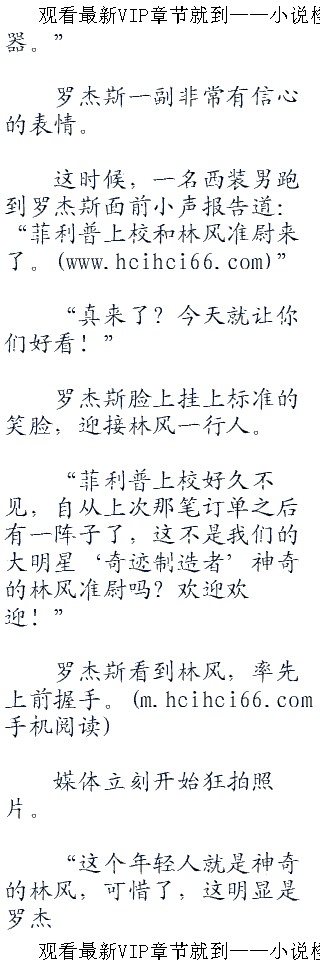 观看最新VIP章节就到——小说
器。”
罗杰斯一副非常有信心
的表情。
这时候，一名西装男跑
到罗杰斯面前小声报告道：
“菲利普上校和林风准尉来
了。(www.hcihci66.com)”
“真来了？今天就让你
们好看！”
罗杰斯脸上挂上标准的
笑脸，迎接林风一行人。
“菲利普上校好久不
见，自从上次那笔订单之后
有一阵子了，这不是我们的
大明星‘奇迹制造者’神奇
的林风准尉吗？欢迎欢
迎！”
罗杰斯看到林风，率先
上前握手。(m.hcihci66.com
手机阅读)
媒体立刻开始狂拍照
片。
“这个年轻人就是神奇
的林风，可惜了，这明显是
罗杰
观看最新VIP章节就到——小说